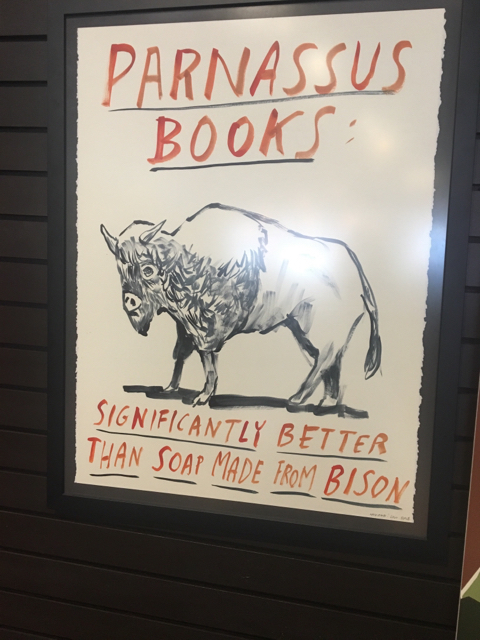 PARNASSUS
BOOKS:
SIGNIFICANTLY BETTER
THAN SOAP MADE FROM BISON